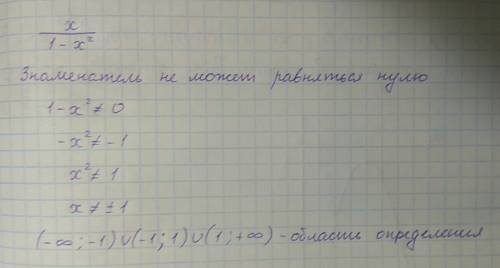 x
1 - x²
Знаменатель не может равняться нулю
1 - x² ≠ 0
-x² ≠ -1
x² ≠ 1
x ≠ ± 1
(-∞; -1) ∪ (-1; 1) ∪ (1; +∞) - области определения